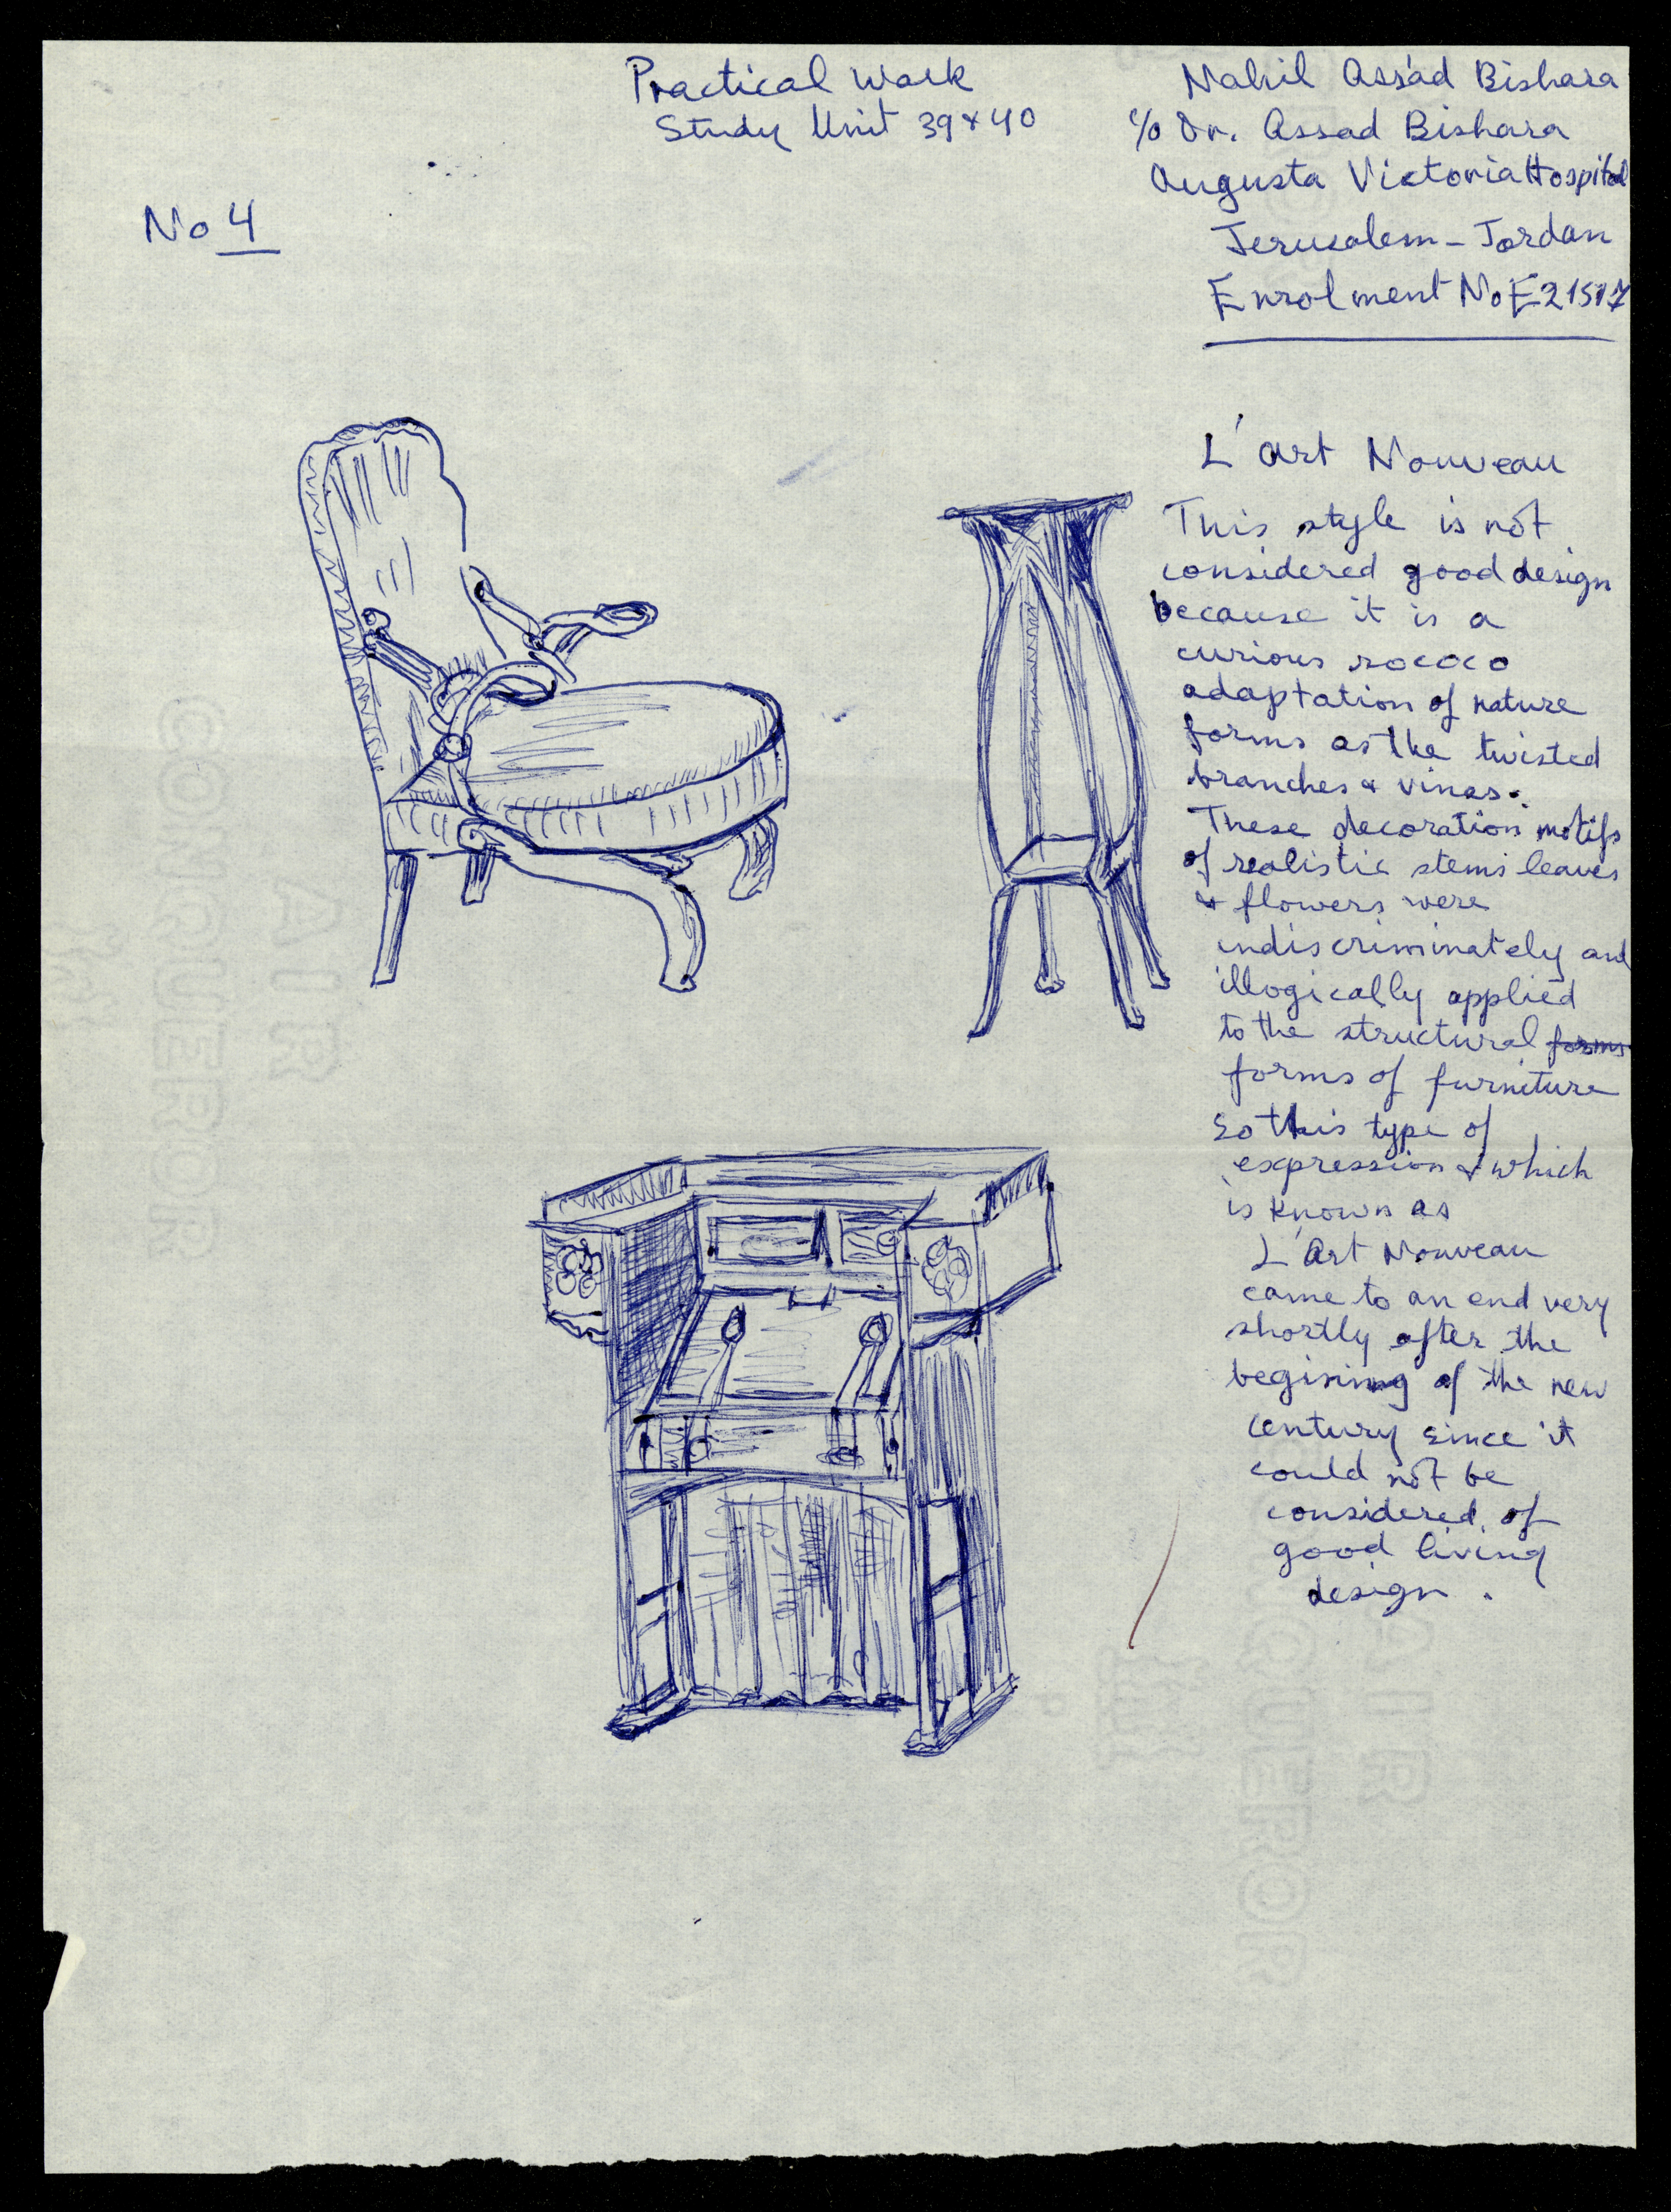 Practical Work
Study Unit 39 & 40
Nahil Assad Bishara
c/o Dr. Assad Bishara
Augusta Victoria Hospital
Jerusalem - Jordan
Enrolment No E 21517
No 4
L'art Nouveau
This style is not
considered good design
because it is a
curious rococo
adaptation of nature
forms as the twisted
branches & vines.
These decoration motifs
of realistic stems leaves
& flowers were
indiscriminately and
illogically applied
to the structural forms
forms of furniture
So this type of
expression & which
is known as
L'Art Nouveau
came to an end very
shortly after the
begining of the new
century since it
could not be
considered of
good living
design.
CONQUEROR
AIR
CONQUEROR
AIR